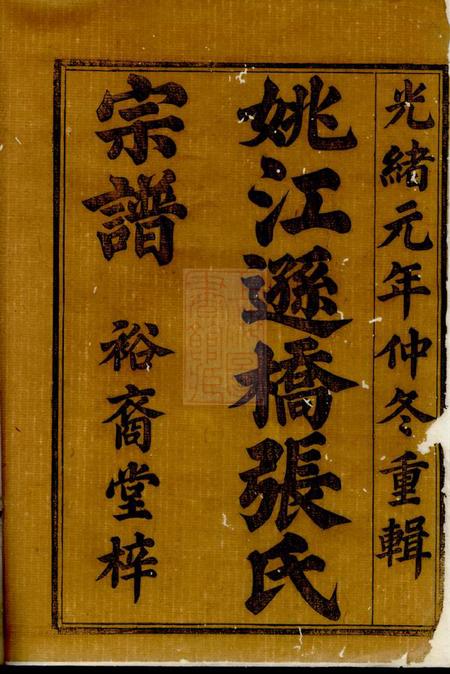 光緒元年仲冬重輯
姚江遜橋張氏
宗譜 裕裔堂梓